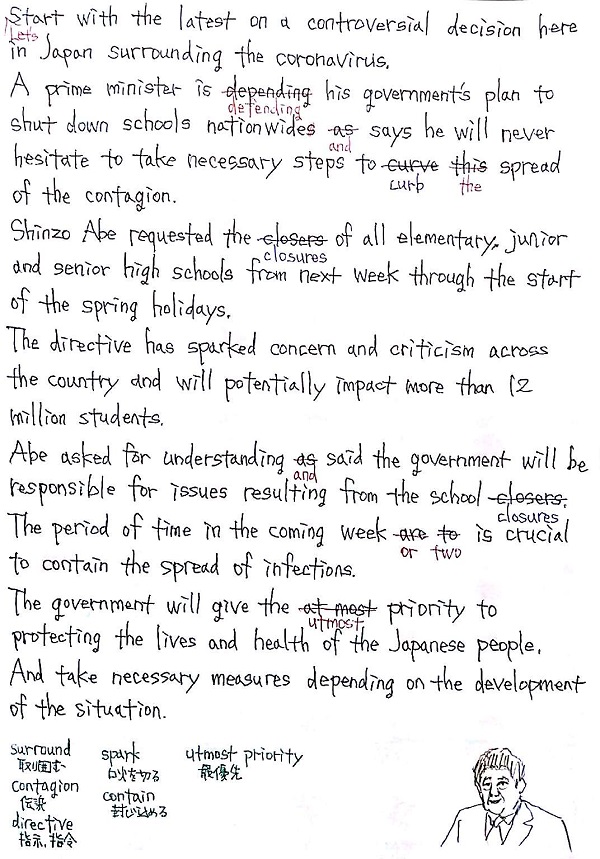 Start with the latest on a controversial decision here
Let's
in Japan surrounding the coronavirus.
A prime minister is depending his government's plan to
defending
shut down schools nationwides as says he will never
and
hesitate to take necessary steps to curve this spread
curb the
of the contagion.
Shinzo Abe requested the closers of all elementary, junior
closures
and senior high schools from next week through the start
of the spring holidays.
The directive has sparked concern and criticism across
the country and will potentially impact more than 12
million students.
Abe asked for understanding as said the government will be
and
responsible for issues resulting from the school closers.
closures
The period of time in the coming week are to is crucial
or two
to contain the spread of infections.
The government will give the at most priority to
utmost
protecting the lives and health of the Japanese people.
And take necessary measures depending on the development
of the situation.
surround spark utmost priority
取り囲む 口火を切る 最優先
contagion contain
伝染 封じ込める
directive
指示、指令